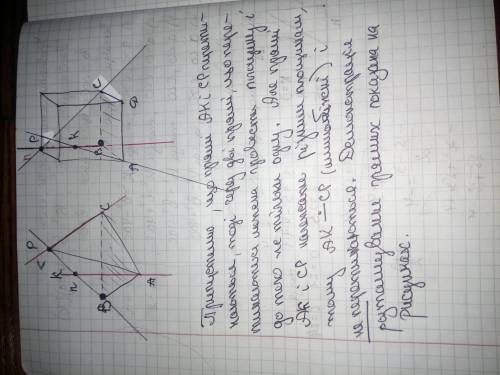 Припустимо, що прямі AK і CP перети-
наються, тоді через дві прямі, що пере-
тинаються можна провести площину і
до того ж тільки одну. Але прямі
AK і CP належать різним площинам,
тому AK ∸ CP (мимобіжні) і
не перетинаються. Демонстрація
розташування прямих показана на
рисунках.
P
C
K
n
B
A
n
P
K
C
B
D
A